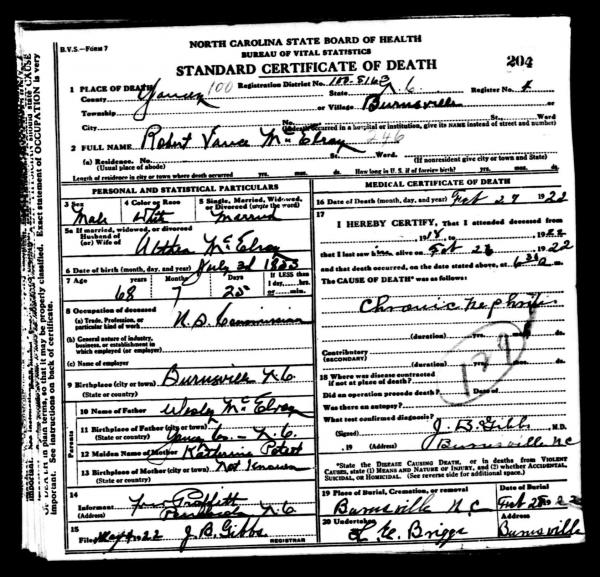 B.V.S.—Form 7
NORTH CAROLINA STATE BOARD OF HEALTH
BUREAU OF VITAL STATISTICS
STANDARD CERTIFICATE OF DEATH
204
1 PLACE OF DEATH 100 Registration District No. 100-5163 Register No. 4
County Yancey State N.C.
Township or Village Burnsville or
City No. St., Ward
(If death occurred in a hospital or institution, give its NAME instead of street and number)
2 FULL NAME Robert Vance McElroy 246
(a) Residence. No. St., Ward.
(Usual place of abode) (If nonresident give city or town and State)
Length of residence in city or town where death occurred yrs. mos. ds. How long in U.S. if of foreign birth? yrs. mos. ds.
PERSONAL AND STATISTICAL PARTICULARS
3 Sex 4 Color or Race 5 Single, Married, Widowed, or Divorced (write the word)
Male White Married
5a If married, widowed, or divorced
HUSBAND of
(or) Wife of McElroy
6 Date of birth (month, day, and year) July 2d 1853
7 Age years Months days If LESS than
1 day,....hrs.
or....min.
68 7 25
8 Occupation of deceased
(a) Trade, Profession, or
particular kind of work
(b) General nature of industry,
business, or establishment in
which employed (or employer)
(c) Name of employer
9 Birthplace (city or town) Burnsville N.C.
(State or country)
Parents
10 Name of Father Wesley McElroy
11 Birthplace of Father (city or town)
(State or country) Yancey Co. N.C.
12 Maiden Name of Mother Katharine Poteet
13 Birthplace of Mother (city or town)
(State or country) Not Known
14
Informant Proffitt
(Address) Pensacola N.C.
15
Filed May 1, 22 J. B. Gibbs
REGISTRAR
MEDICAL CERTIFICATE OF DEATH
16 Date of Death (month, day, and year) Feb 27 1922
17
I HEREBY CERTIFY, That I attended deceased from
18 1922
that I last saw him alive on Feb 1922
and that death occurred, on the date stated above, at 6 30 a m.
The CAUSE OF DEATH* was as follows:
Chronic Nephritis
(duration) yrs. mos. ds.
Contributory
(SECONDARY)
(duration) yrs. mos. ds.
129
18 Where was disease contracted
if not at place of death?
Did an operation precede death? Date of
Was there an autopsy?
What test confirmed diagnosis?
(Signed) J. B. Gibbs M.D.
, 19 (Address) Burnsville NC
*State the DISEASE CAUSING DEATH, or in deaths from VIOLENT
CAUSES, state (1) MEANS AND NATURE OF INJURY, and (2) whether ACCIDENTAL,
SUICIDAL, OR HOMICIDAL. (See reverse side for additional space.)
19 Place of Burial, Cremation, or removal Date of Burial
Burnsville NC Feb 28 1922
20 Undertaker Address
Briggs Burnsville
in plain terms, so that it may be properly classified. Exact statement of OCCUPATION is very
important. See instructions on back of certificate.